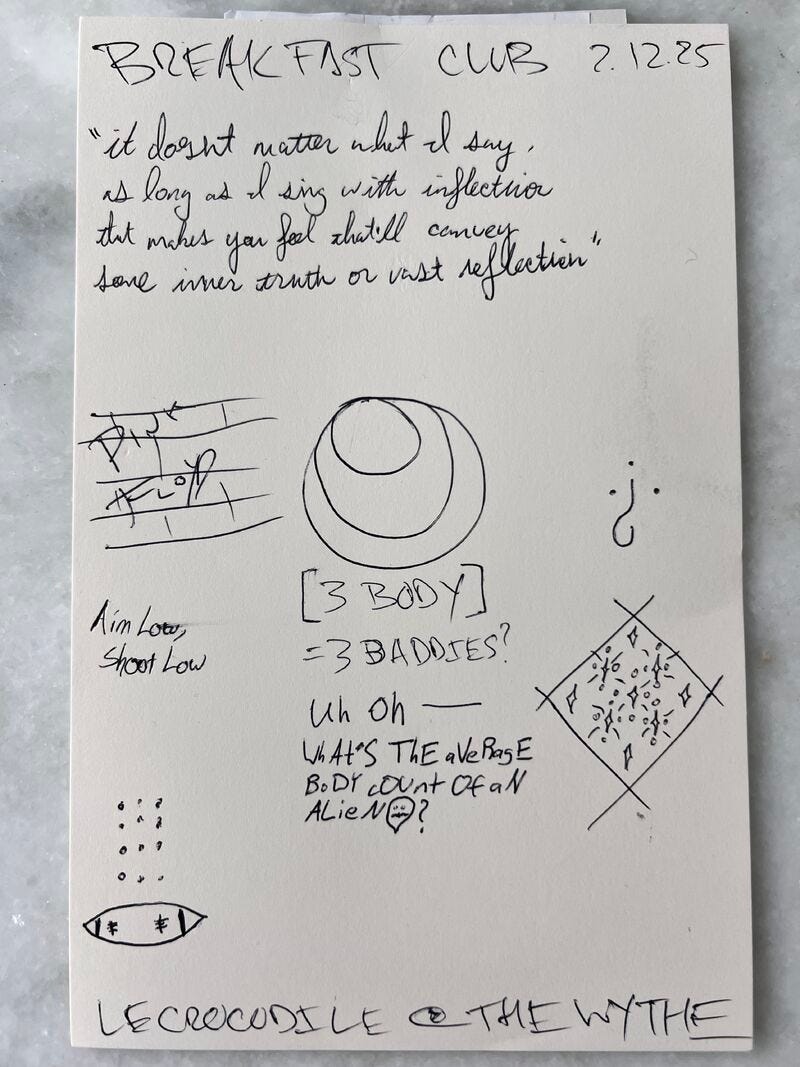 BREAKFAST CLUB 2.12.25
"it doesn't matter what I say,
as long as I sing with inflection
that makes you feel that'll convey
some inner truth or vast reflection"
PINK
FLOYD
¿
[3 BODY]
Aim Low,
Shoot Low
=3 BADDIES?
Uh Oh —
WhAt'S ThE aVeRagE
BoDY cOUnt Of aN
ALieN?
LE CROCODILE @ THE WYTHE